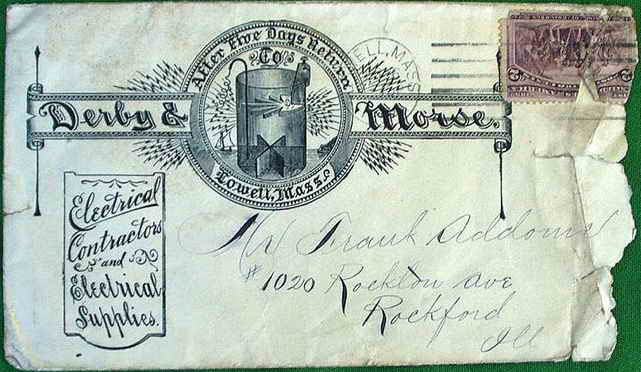 After Five Days Return
to
Derby & Morse.
Lowell, Mass.
Electrical
Contractors
and
Electrical
Supplies.
ELL, MASS
Mr Frank Addoms
#1020 Rockton Ave
Rockford
Ill